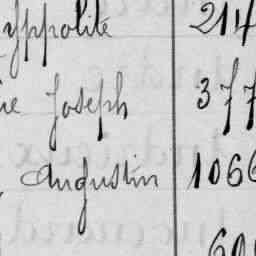 yppolite 214
ie Joseph 377
Augustin 1066